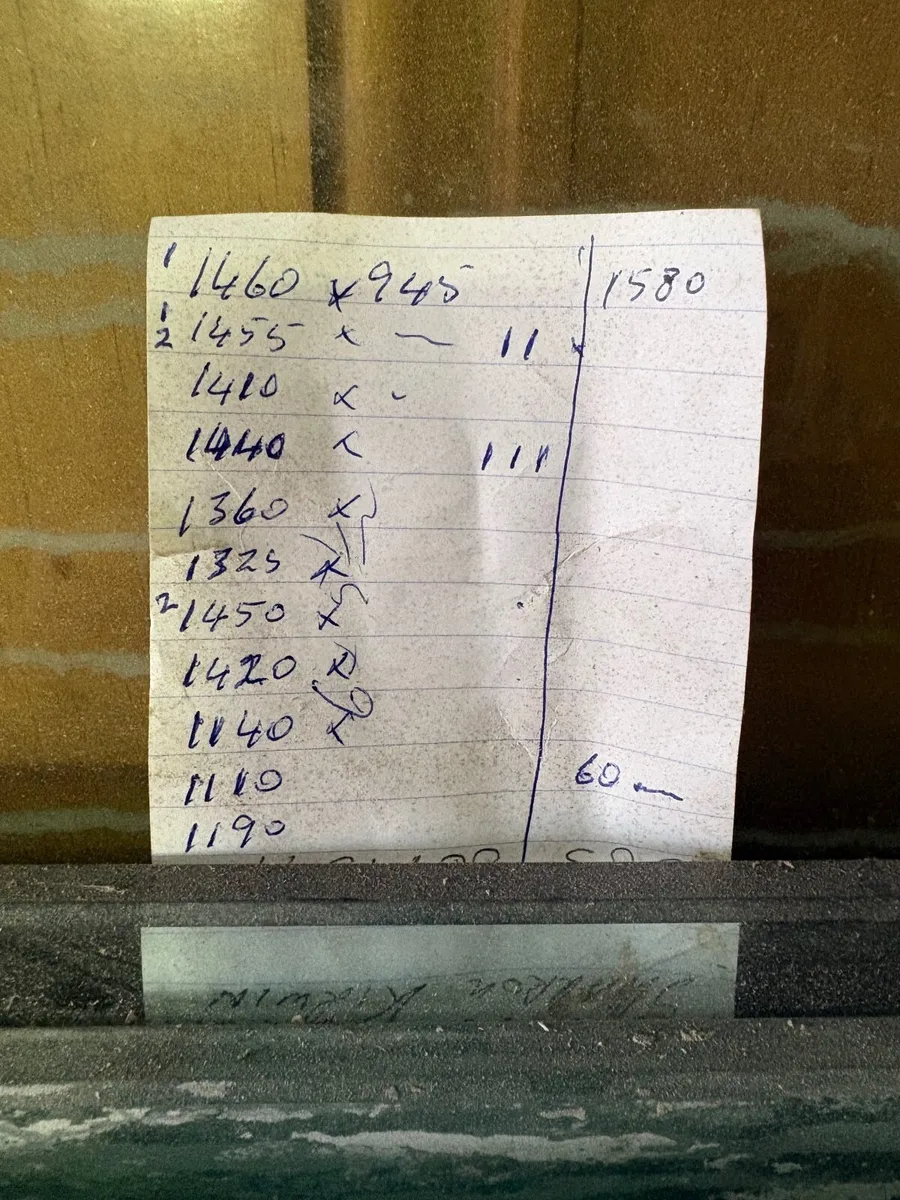 1 1460 x 945 1580
1
2 1455 x — 11 x
1410 x -
1440 x 111
1360 x
1325 x
2 1450 x
1420 x
1140 x
1110
60 mm
1190